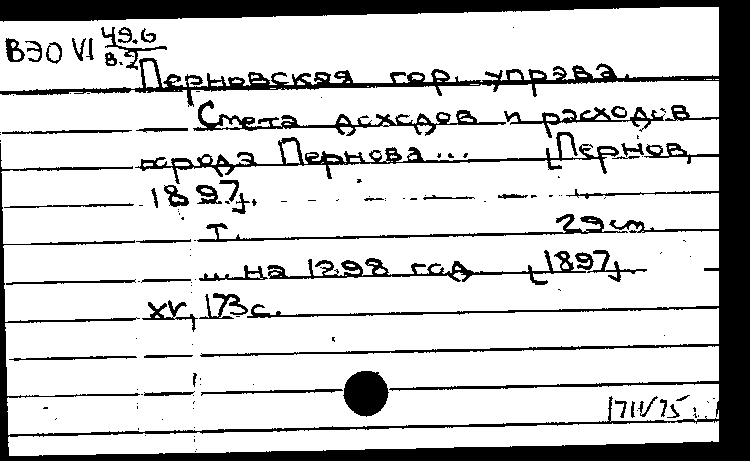 ВЭО VI 49.6
в.2
Перновская гор. управа.
Смета доходов и расходов
города Пернова... [Пернов,
1897].
т. 29 см.
... на 1898 год [1897].
XV, 173 с.
171V75